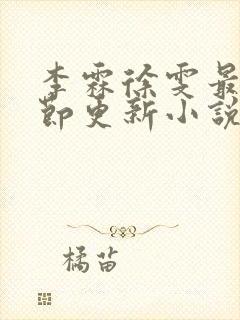 李霖徐雯最
節更新小說
橘苗